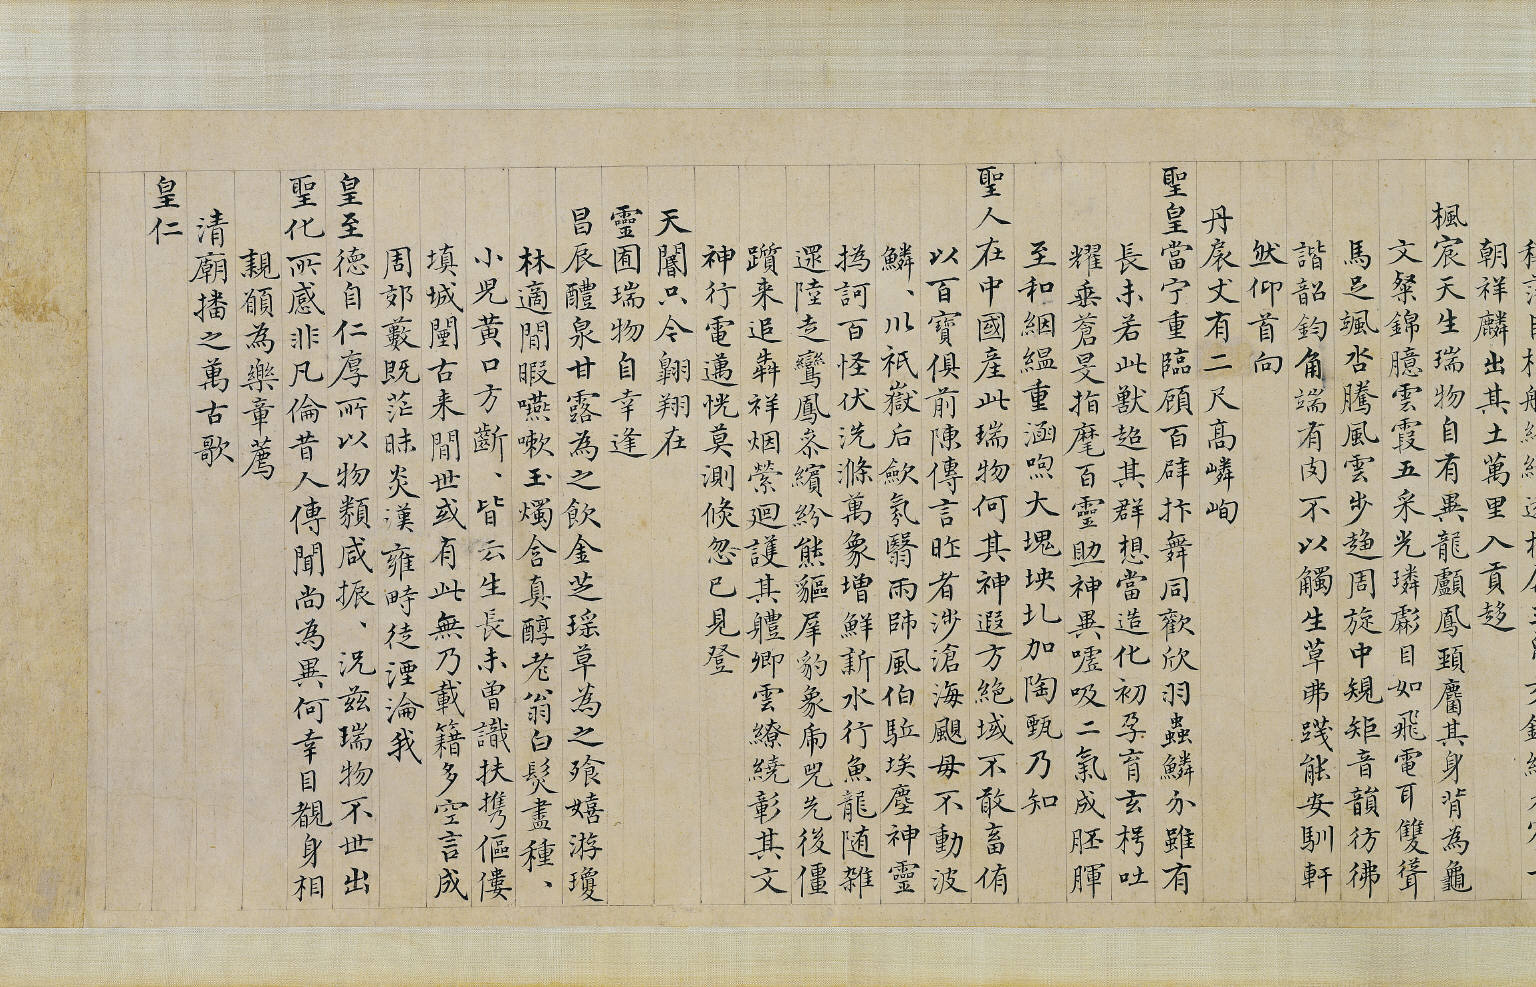 朝祥麟出其土萬里入貢趍
楓宸天生瑞物自有異龍顱鳳頸麕其身背為龜
文粲錦臆雲霞五采光璘彪目如飛電耳雙聳
馬足颯沓騰風雲步趍周旋中規矩音韻彷彿
諧韶鈞角端有肉不以觸生草弗踐能安馴軒
然仰首向
丹扆丈有二尺高嶙峋
聖皇當宁重臨顧百辟抃舞同歡欣羽蟲鱗介雖有
長未若此獸超其群想當造化初孕育玄枵吐
耀垂蒼旻指麾百靈助神異噓吸二氣成胚腪
至和絪縕重涵煦大塊坱圠加陶甄乃知
聖人在中國產此瑞物何其神遐方絶域不敢畜侑
以百寶俱前陳傳言昨者涉滄海颶母不動波
鱗、川祇嶽后歛氛翳雨師風伯駈埃塵神靈
撝訶百怪伏洗滌萬象增鮮新水行魚龍随雜
遝陸走鸞鳳紊繽紛熊貙犀豹象兕先後僵
躓来追犇祥烟縈廻護其軆卿雲繚繞彰其文
神行電邁恍莫測倐忽已見登
天闇只令翱翔在
靈囿瑞物自幸逢
昌辰醴泉甘露為之飲金芝瑶草為之飱嬉游瓊
林適間暇嚥嗽玉燭含真醇老翁白髮盡種、
小児黄口方齗、皆云生長未曾識扶攜傴僂
填城闉古来間世或有此無乃載籍多空言成
周郊藪既茫昧炎漢雍畤徒湮淪我
皇至德自仁厚所以物類咸振、況兹瑞物不世出
聖化所感非凡倫昔人傳聞尚為異何幸目覩身相
親願為樂章薦
清廟播之萬古歌
皇仁